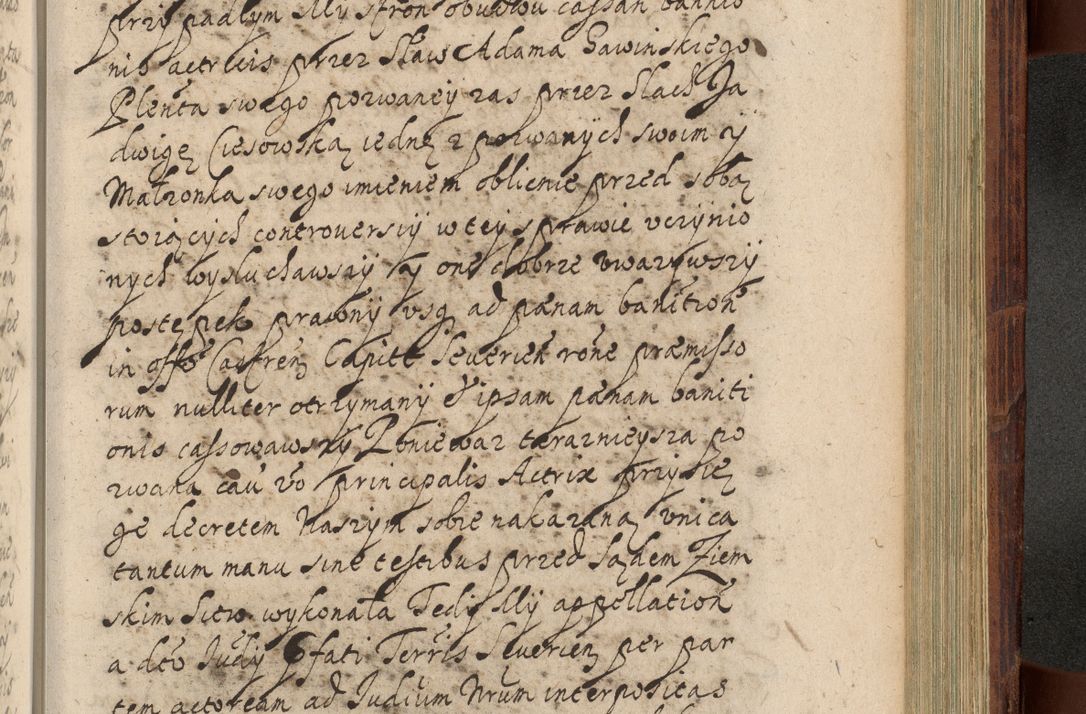 przypadłym My stron obudwu cassan bannio
nis actricis przez Sław Adama Gawinskiego
Plenta swego pozwaney zas przez Slach Ja
dwigę Ciesowską iednę z pozwanych swoim y
Małzonka swego imieniem oblicnie przed sobą
stoiących controversiy w tey sprawie uczynio
nych wysłuchawszy y one dobrze uwazywszy
postępek prawny usq ad pænam banition
in offo Castren Capitt Severien rone præmisso
rum nulliter otrzymany & ipsam pænam baniti
onis cassowawszy Poniewaz teraznieysza po
zwana cau vo principalis Actrix przysię
gę decretem Naszym sobie nakazaną unica
tantum manu sine testibus przed Sądem Ziem
skim Sctw wykonała Tedy My appellation
a dto Judy Pfati Terris Severien per par
tem actoream ad Judium Nrum interpositas